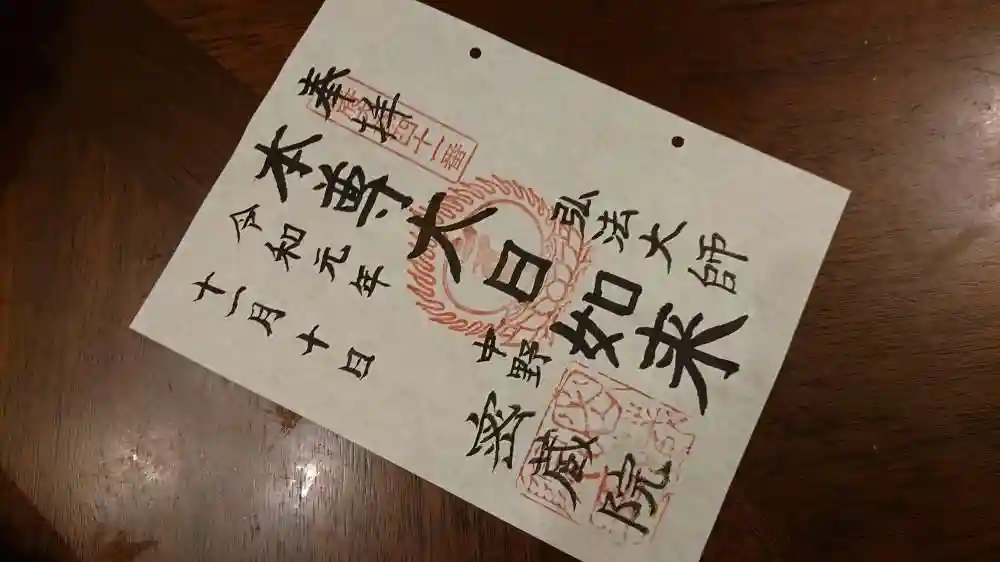 奉拝
四十一番
弘法大師
本尊大日如来
令和元年
十一月十日
中野
密蔵院